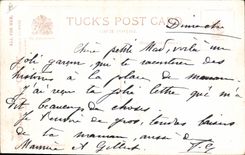 TUCK'S POST CARD
Dimanche
Chère petite Mad, voilà un
joli garçon qui te racontera des
histoires à la place de maman.
J'ai reçu ta jolie lettre qui m'a
fait beaucoup de choses
Je t'envoie de gros, tendres baisers
de ta maman aussi à
Maurice et Gilbert